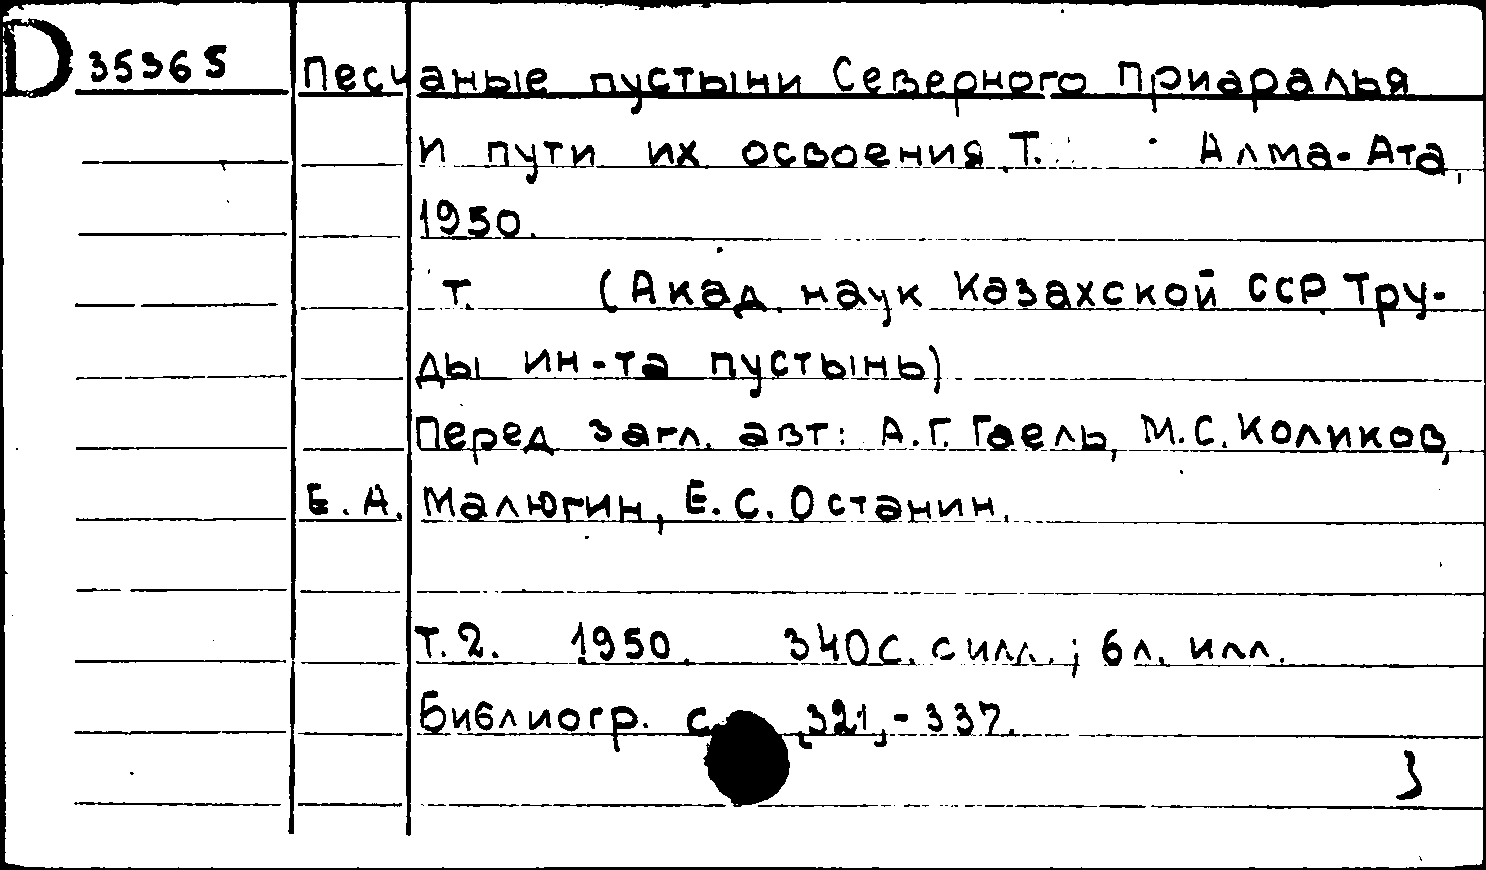 D 35365 Песчаные пустыни Северного Приаралья
и пути их освоения. Т. Алма-Ата,
1950.
т. (Акад. наук Казахской ССР Тру-
ды ин-та пустынь)
Перед загл. авт: А.Г. Гаель, М.С. Коликов,
Е.А. Малюгин, Е.С. Останин.
Т.2. 1950. 340с. с илл.; 6 л. илл.
Библиогр. с. [321]-337.